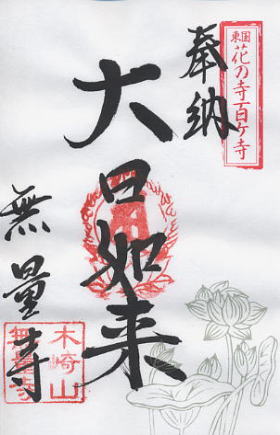 東国花の寺百ヶ寺
奉納
大日如来
無量寺
木崎山
無量寺